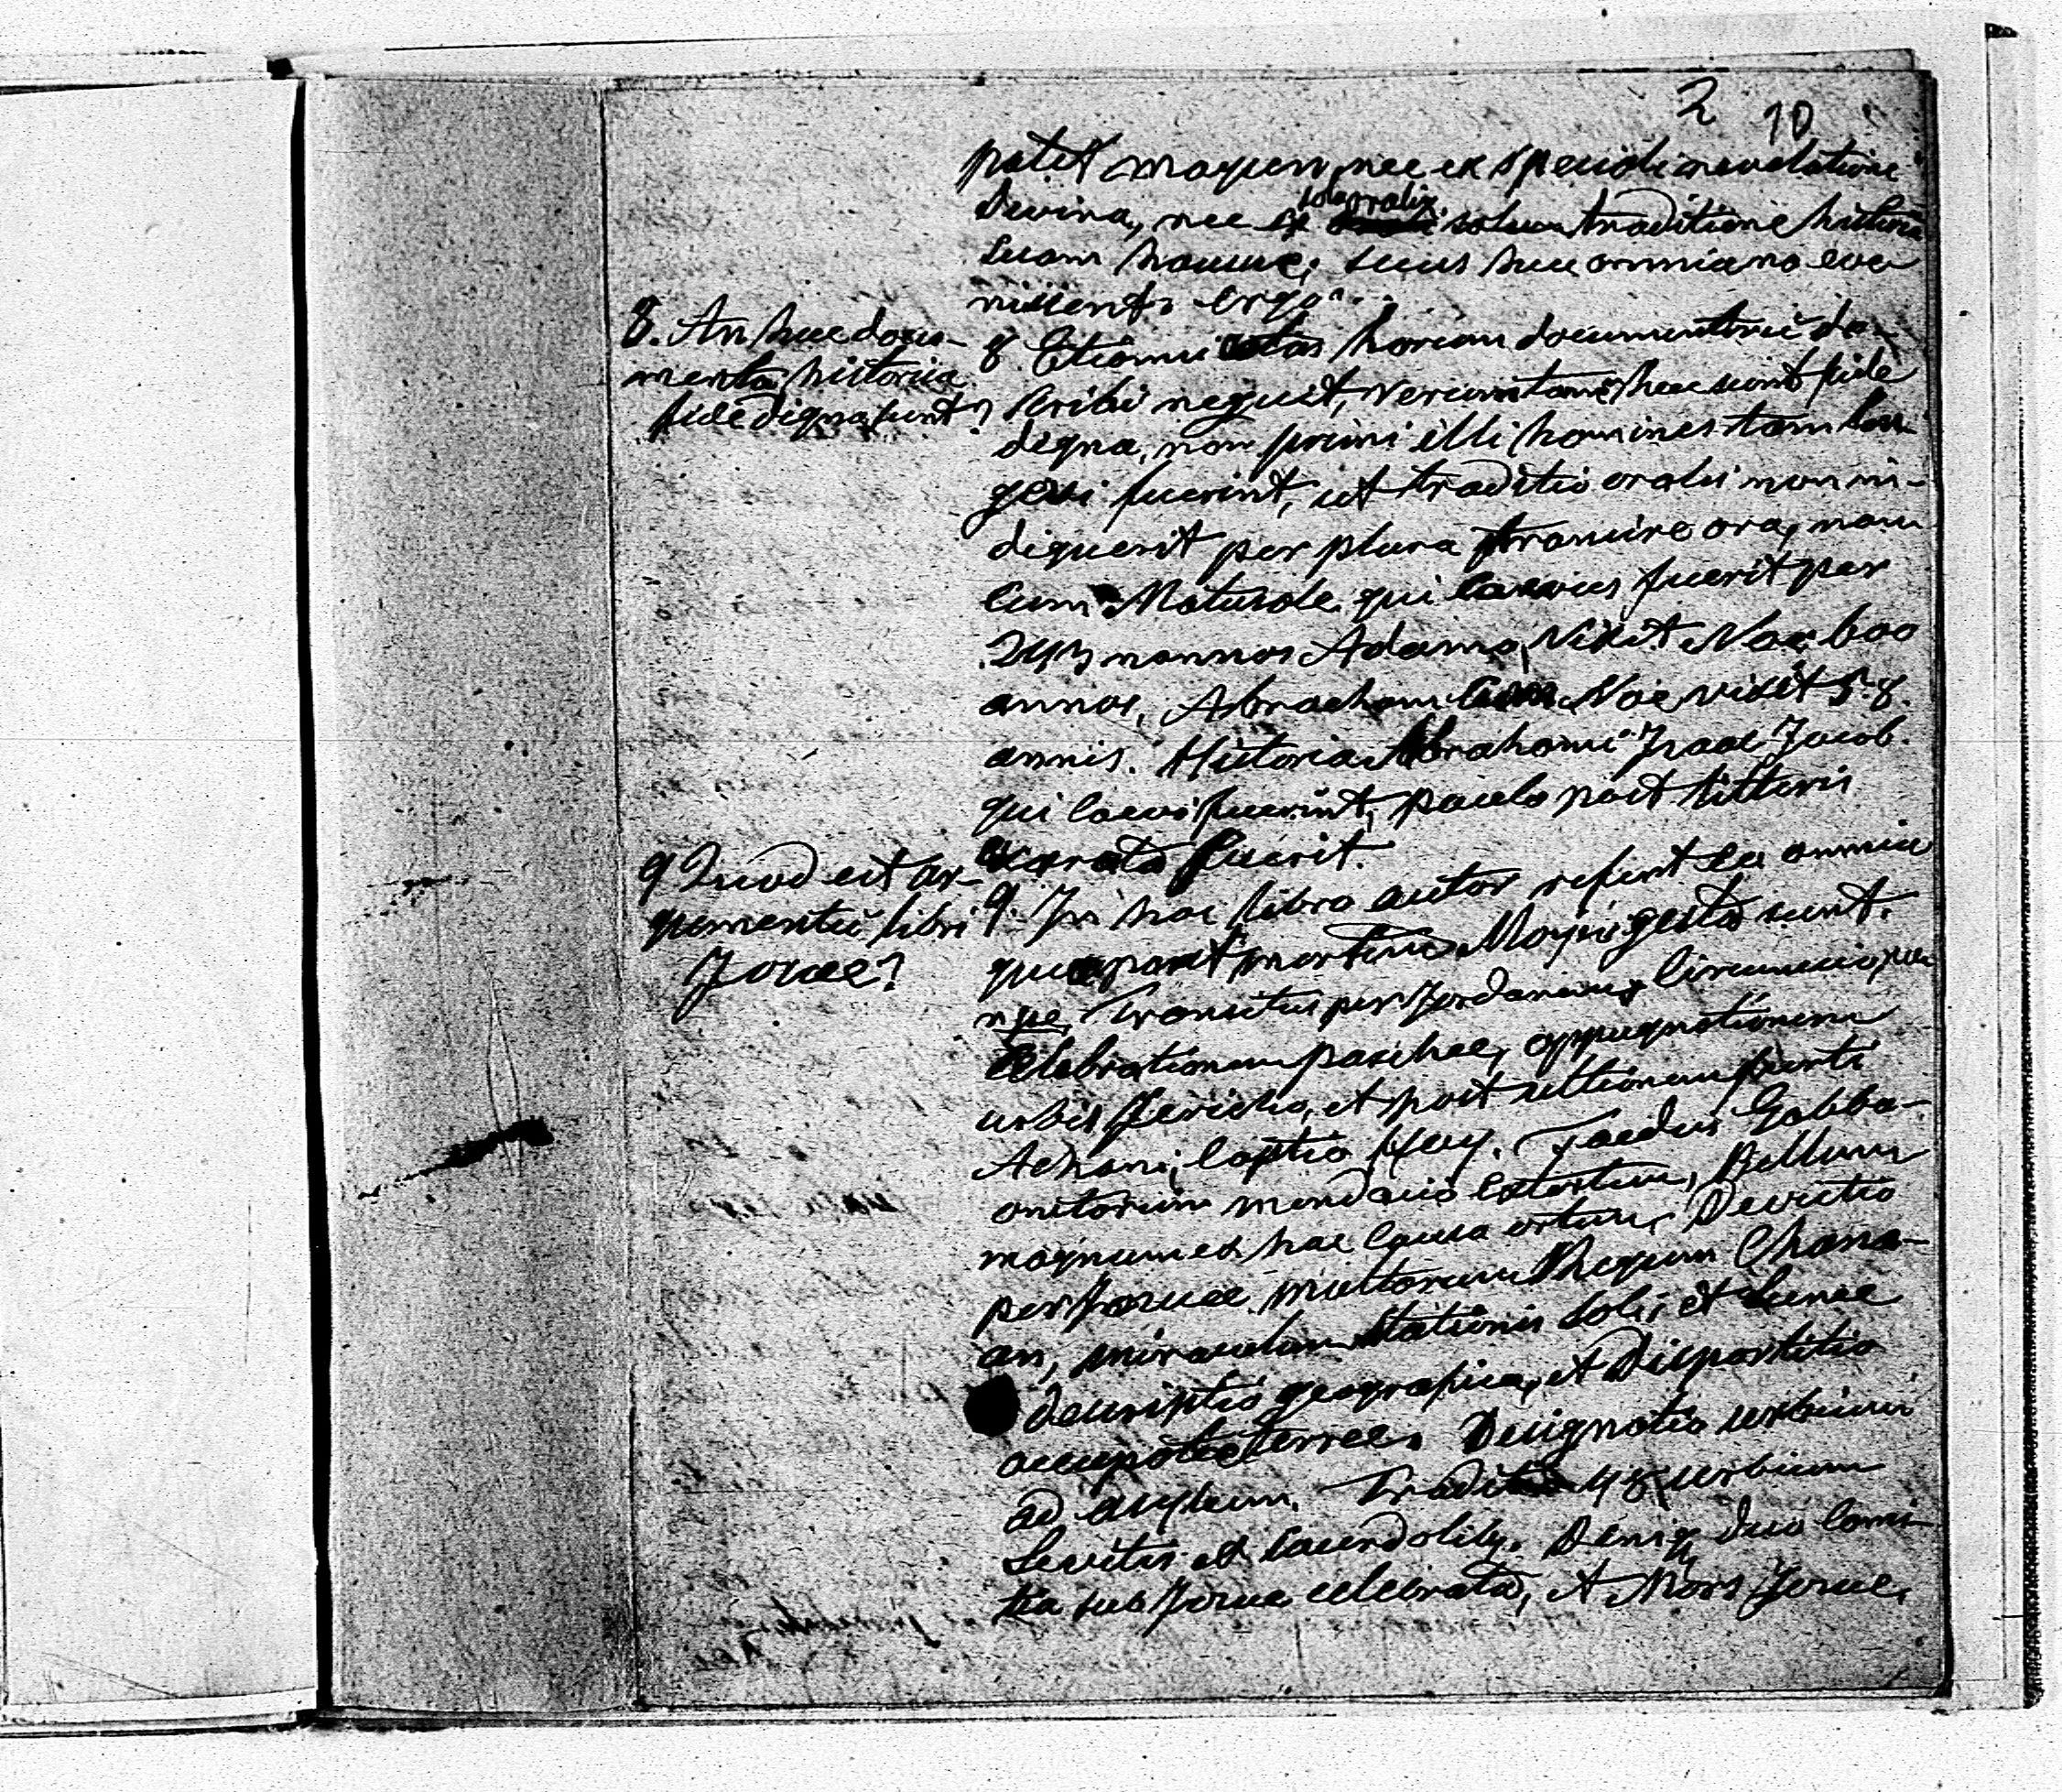 2 10
patet Moysen, nec ex speciali revelatione
divina, nec ex sola orali traditione historia
suam hausisse, secus hec omnia no eve
nissent. Ergo.
8. An haec docu-
menta historica
fide digna sunt?
8 Etiamsi aetas horum documentorū de-
scribi nequit, verumtamē haec sunt fide
digna, nam primi illi homines tam lon
gevi fuerint, ut traditio oralis non in-
diguerit per plura transire ora, nam
cum Matusale qui coaevus fuerit per
243 annos Adamo, vixit Noe 600
annos, Abracham cum Noe vixit 58.
annis. Historia Abrahami Isaac Jacob
qui coaevi fuerint, paulo post litteris
exarata fuerit.
9 Quod est ar-
gumentū libri
Josuae?
9. In hoc libro autor refert ea omnia
quae post mortem Moysis gesta sunt.
nṕe, Transitus per Jordanem, Circumcisio,
celebrationem paschae, oppugnationem
urbis Jericho, et post ultionem furti
Achani, captio Hay. Faedus Gabba-
onitarum mendacio extortum, Bellum
magnum ex hac causa ortum, Devictio
per Josuae multorum Rhegum Chana-
an, miraculum stationis solis et lunae
descriptio geografica, et Dispartitio
occupatae terrae. Designatio urbium
ad asylum. Tradit 48 urbium
Levitis et sacerdotibq. Deniq duo comi-
tia sub Josue celebrata, et Mors Josue.